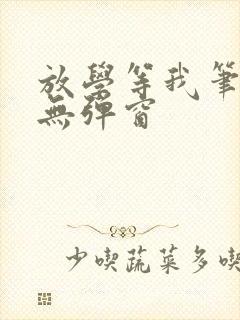 放學等我筆
無彈窗
少喫蔬菜多喫